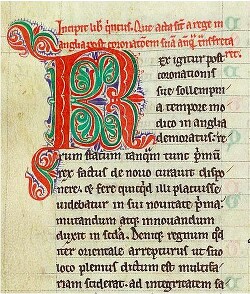 Incipit lib' quintus. Que acta sint a rege in
anglia post coronationem suā antqᵃm transfreta
ret.
Rex igitur post
coronationis
sue sollempni
a tempore mo
dico in anglia
demoratus: re
rum statum tanqᵃm tunc pⁱmū
rex factus de nouo curauit dispo
nere. & fere quicqⁱd illi placuisse
uidebatur in sui nouitate pⁱma:
mutandum atque innouandum
duxit in Denique regnum
ter orientale arrepturus ut suo
loco plenius dictum est multifa
riam sciderat. ad integritatem sa